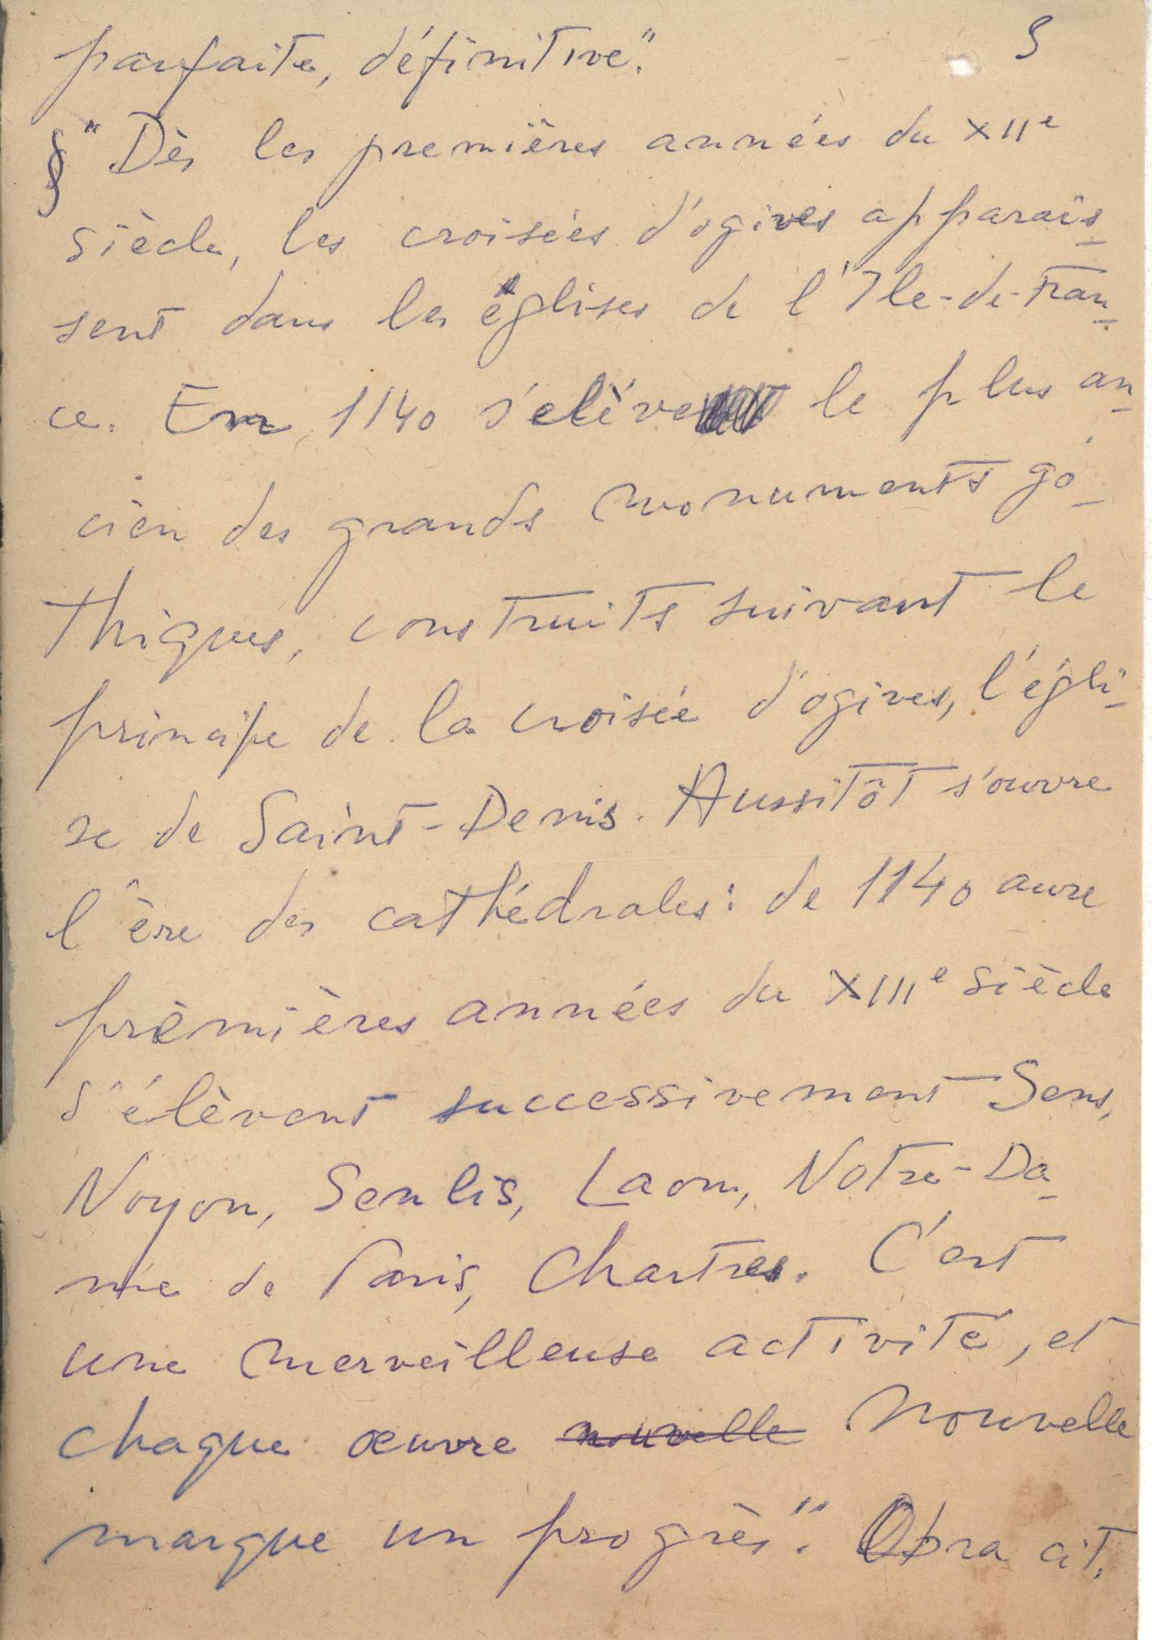 parfaite, définitive". 9
§ "Dès les premières années du XIIe
siècle, les croisées d'ogives apparais-
sent dans les églises de l'Ile-de-Fran-
ce. En 1140 s'elève le plus an-
cien des grands monuments go-
thiques, construits suivant le
principe de la croisée d'ogives, l'égli-
se de Saint-Denis. Aussitôt s'ouvre
l'ère des cathédrales: de 1140 aux
premières années du XIIIe siècle
s'élèvent successivement Sens,
Noyon, Senlis, Laon, Notre-Da-
me de Paris, Chartres. C'est
une merveilleuse activité, et
chaque œuvre nouvelle nouvelle
marque un progrès". Obra cit.